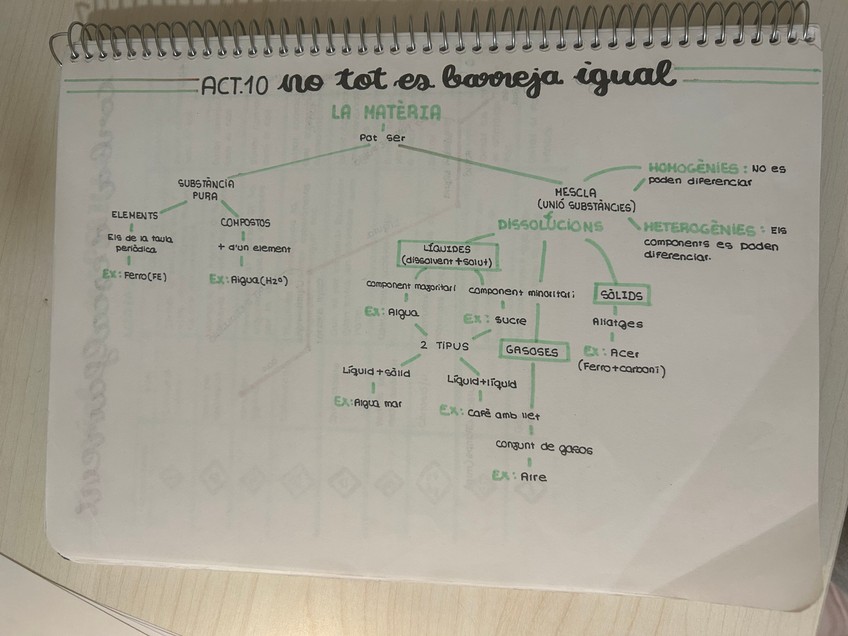 ACT.10 no tot es barreja igual
LA MATÈRIA
Pot ser
SUBSTÀNCIA
PURA
ELEMENTS
Els de la taula
periòdica
Ex: Ferro(FE)
COMPOSTOS
+ d'un element
Ex: Aigua(H2O)
MESCLA
(UNIÓ SUBSTÀNCIES)
HOMOGÈNIES: NO es
poden diferenciar
HETEROGÈNIES: Els
components es poden
diferenciar.
DISSOLUCIONS
LÍQUIDES
(dissolvent+solut)
component majoritari
Ex: Aigua
component minoritari
Ex: Sucre
2 TIPUS
Líquid+sòlid
Ex: Aigua mar
Líquid+líquid
Ex: Cafè amb llet
GASOSES
conjunt de gasos
Ex: Aire
SÒLIDS
Aliatges
Ex: Acer
(Ferro+carboni)